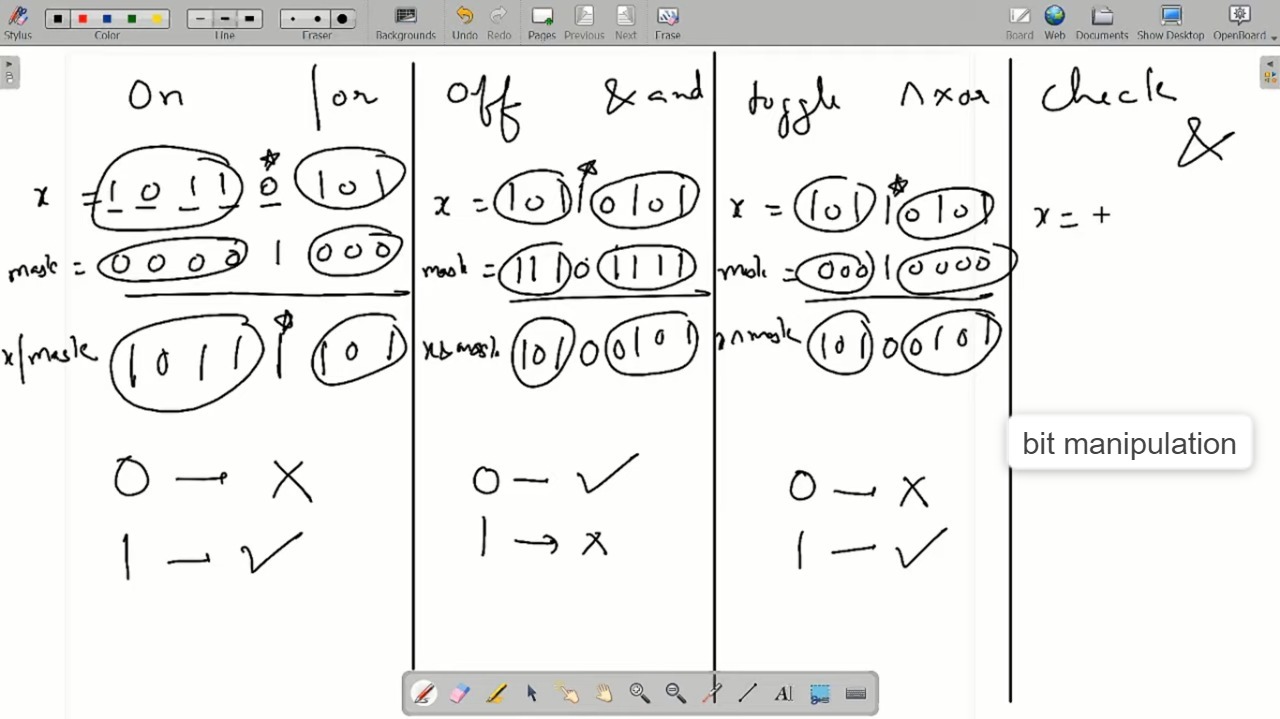 Stylus Color Line Eraser Backgrounds Undo Redo Pages Previous Next Erase Board Web Documents Show Desktop OpenBoard
On | or
x = 1 0 1 1 0 1 0 1
mask = 0 0 0 0 1 0 0 0
x | mask 1 0 1 1 1 1 0 1
0 — ×
1 — ✓
Off & and
x = 1 0 1 1 0 1 0 1
mask = 1 1 1 0 1 1 1 1
x & mask 1 0 1 0 0 1 0 1
0 — ✓
1 → ×
toggle ^ xor
x = 1 0 1 1 0 1 0 1
mask = 0 0 0 1 0 0 0 0
x ^ mask 1 0 1 0 0 1 0 1
0 — ×
1 — ✓
check
&
x = +
bit manipulation
A